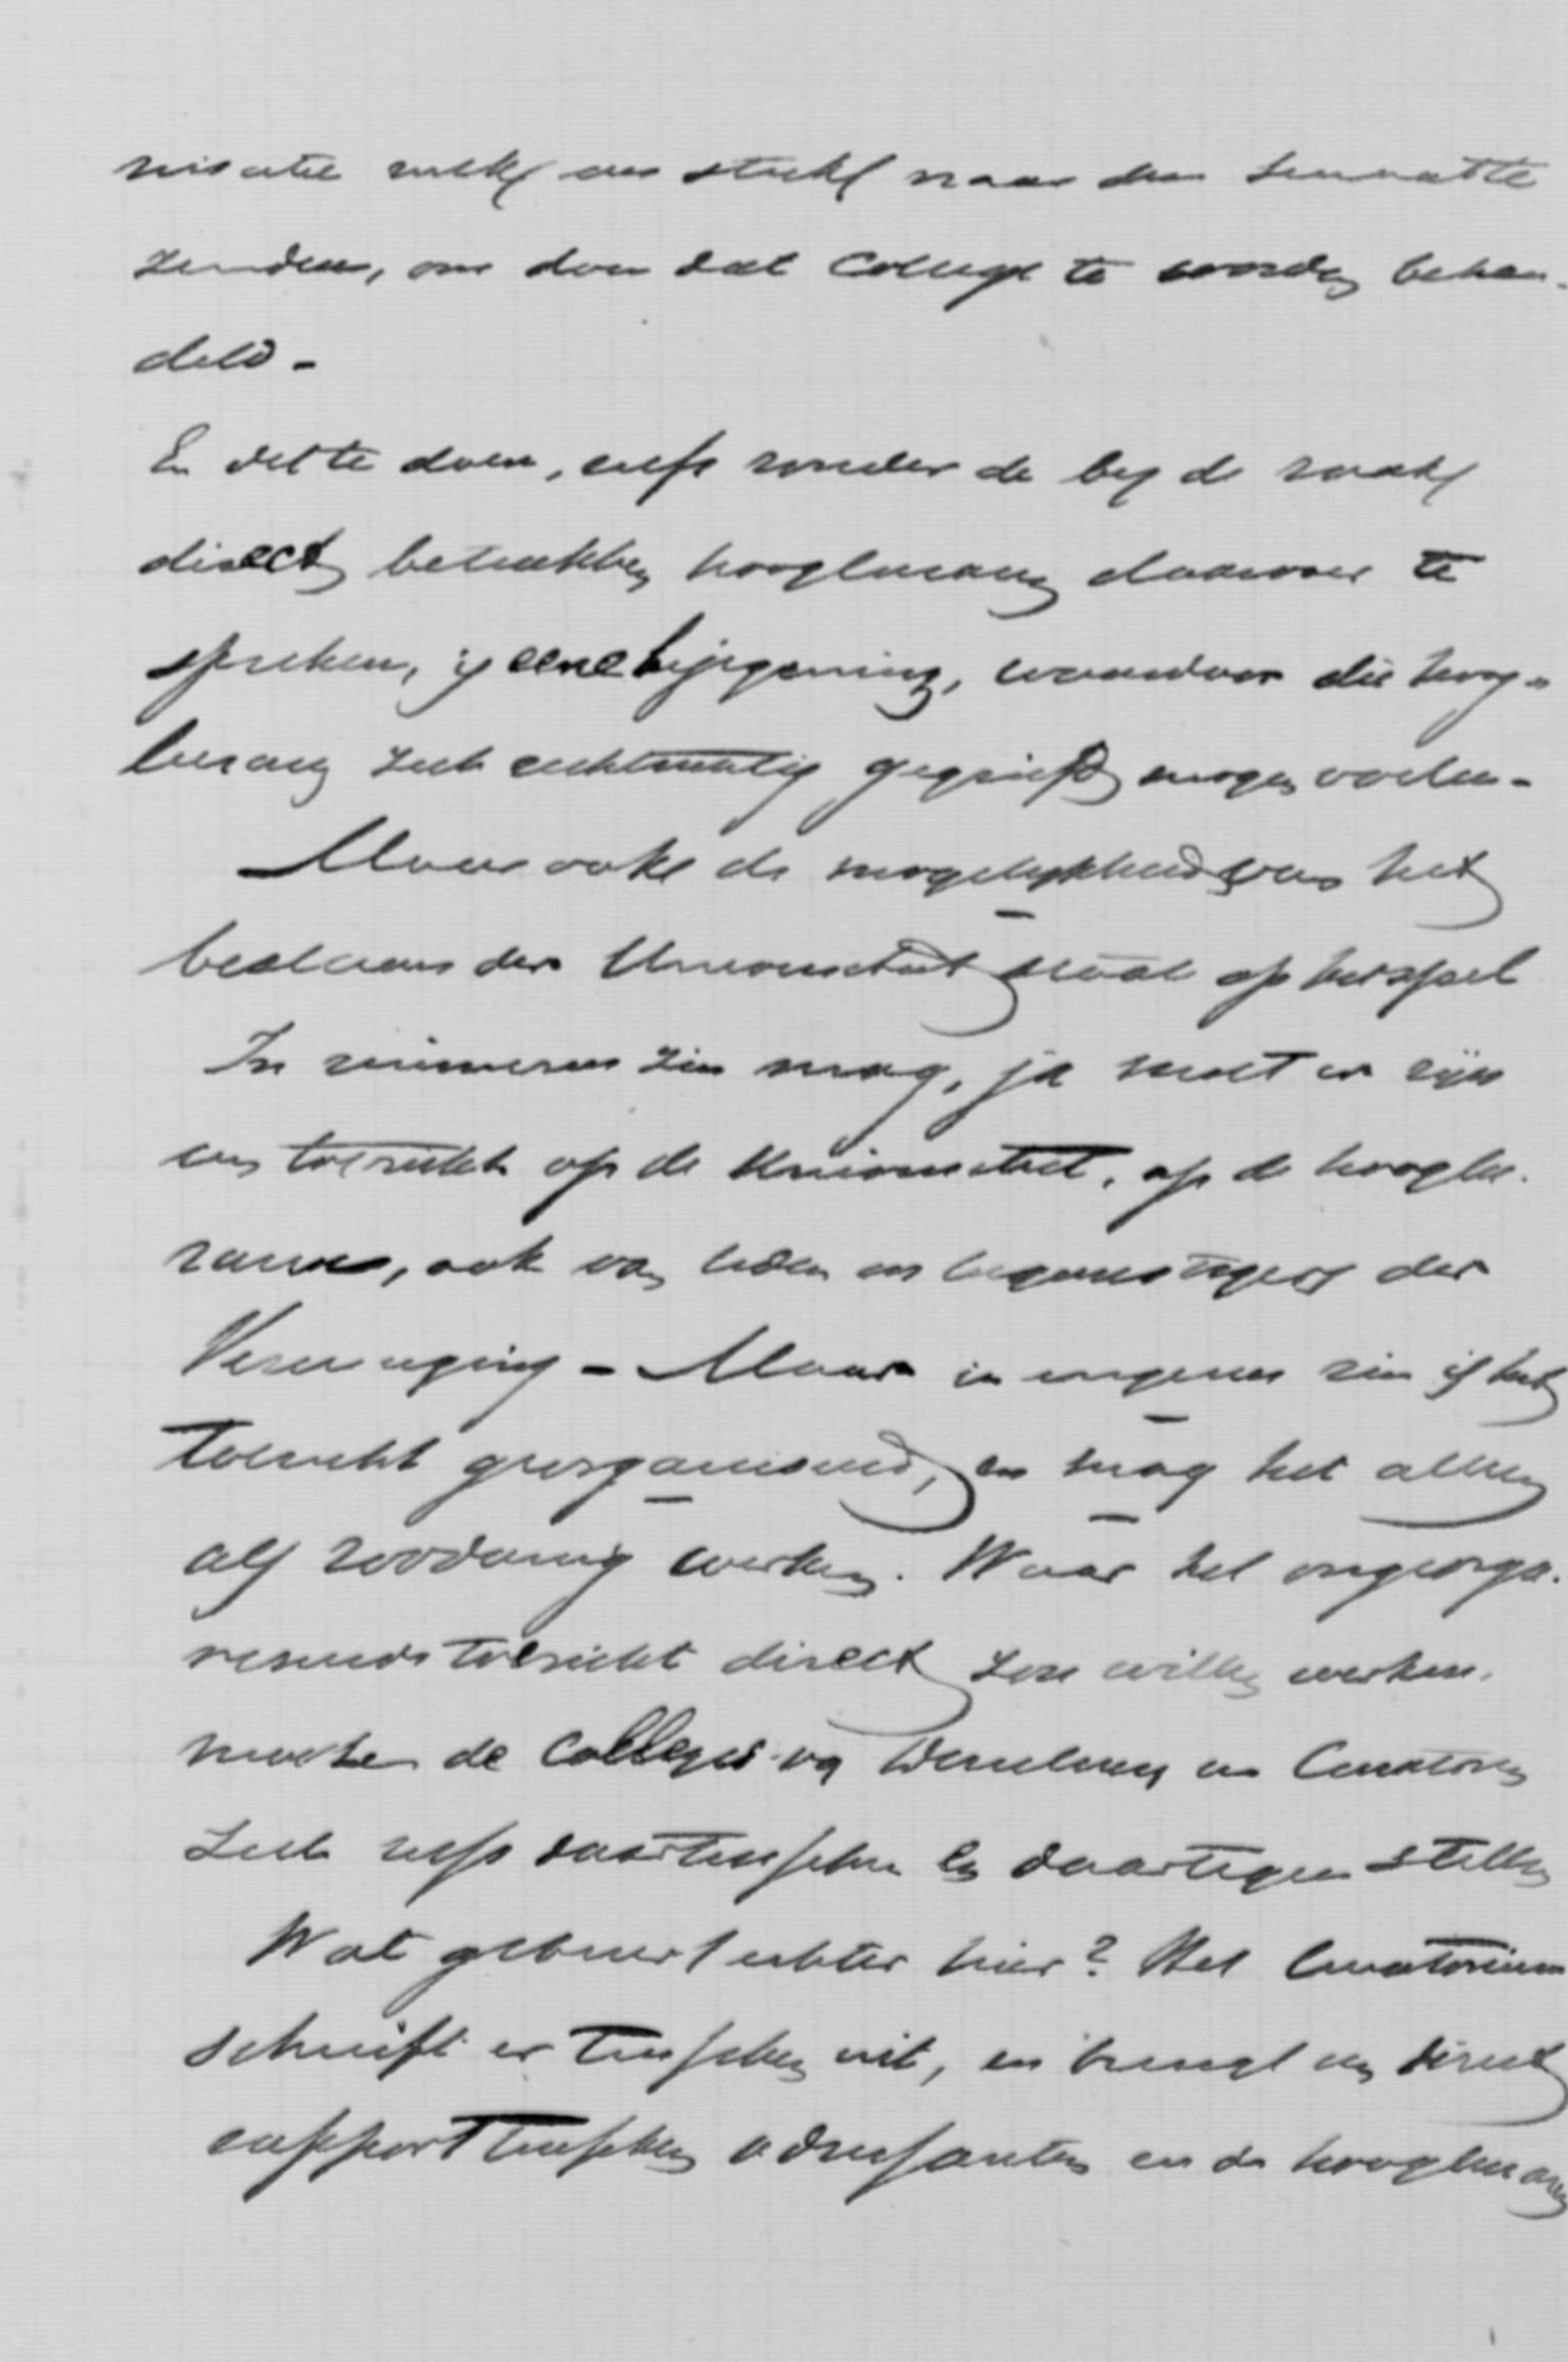 nisatie zulk een stuk naar den Senaat te
zenden, om door dat College te worden behan-
deld.
En dit te doen, zelfs zonder de bij de zaak
direct betrokken hoogleeraren daarover te
spreken, is eene bejegening, waardoor die hoog-
leeraren zich rechtmatig gegriefd mogen voelen.
Maar ook de mogelijkheid van het
bestaan der Universiteit staat op het spel
In ruimeren zin mag, ja moet er zijn
een toezicht op de Universiteit, op de hooglee-
raren, ook van leden en begunstigers der
Vereeniging - Maar in engeren zin is het
toezicht georganiseerd, en mag het alleen
als zoodanig werken. Waar het ongeorga-
niseerde toezicht direct zou willen werken,
moeten de Colleges van Directeuren en Curatoren
zich zelfs daartusschen en daartegen stellen
Wat gebeurt echter hier? Het Curatorium
schuift er tusschen uit, en brengt een direct
rapport tusschen adressanten en de hoogleeraren